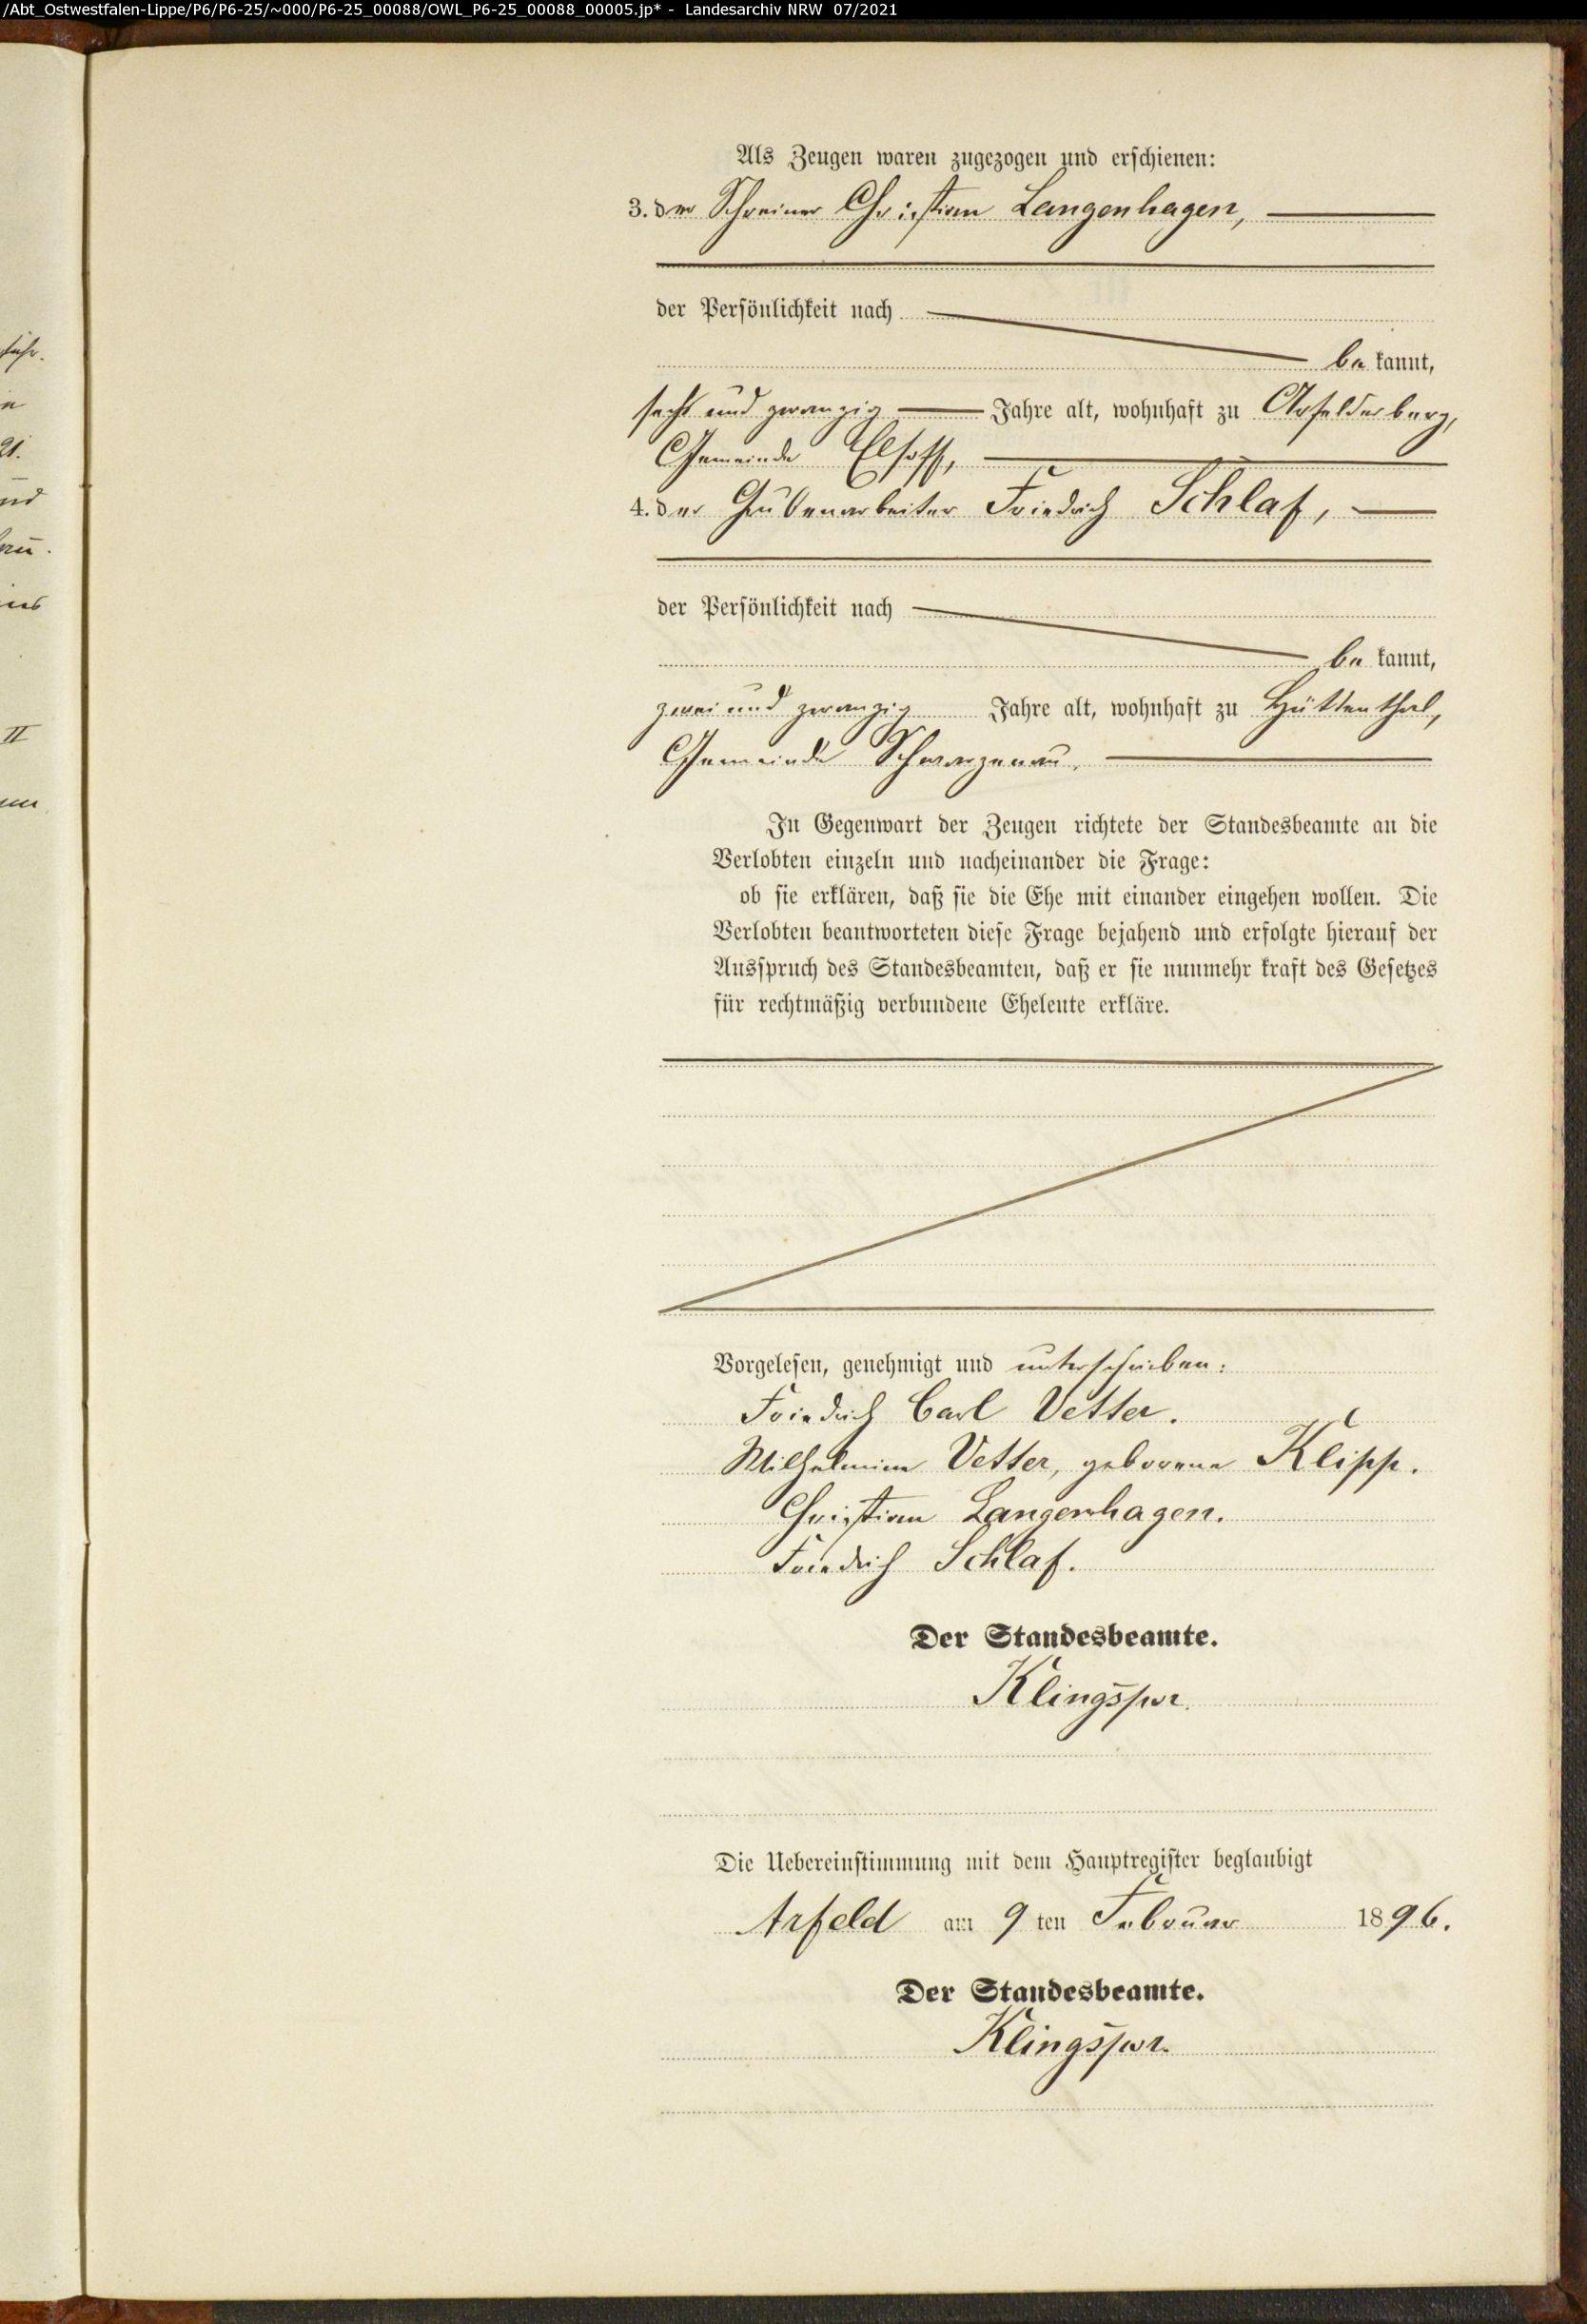 /Abt_Ostwestfalen-Lippe/P6/P6-25/~000/P6-25_00088/OWL_P6-25_00088_00005.jp* - Landesarchiv NRW 07/2021
Als Zeugen waren zugezogen und erschienen:
3. der Schreiner Christian Langenhagen,
der Persönlichkeit nach
be kannt,
sechs und zwanzig Jahre alt, wohnhaft zu Arfelderberg,
Gemeinde Elsoff,
4. der Grubenarbeiter Friedrich Schlaf,
der Persönlichkeit nach
be kannt,
zwei und zwanzig Jahre alt, wohnhaft zu Hüttenthal,
Gemeinde Schwarzenau.
In Gegenwart der Zeugen richtete der Standesbeamte an die
Verlobten einzeln und nacheinander die Frage:
ob sie erklären, daß sie die Ehe mit einander eingehen wollen. Die
Verlobten beantworteten diese Frage bejahend und erfolgte hierauf der
Ausspruch des Standesbeamten, daß er sie nunmehr kraft des Gesetzes
für rechtmäßig verbundene Eheleute erkläre.
Vorgelesen, genehmigt und unterschrieben:
Friedrich Carl Vetter.
Wilhelmine Vetter, geborene Klipp.
Christian Langenhagen.
Friedrich Schlaf.
Der Standesbeamte.
Klingspor.
Die Uebereinstimmung mit dem Hauptregister beglaubigt
Arfeld am 9 ten Februar 1896.
Der Standesbeamte.
Klingspor.